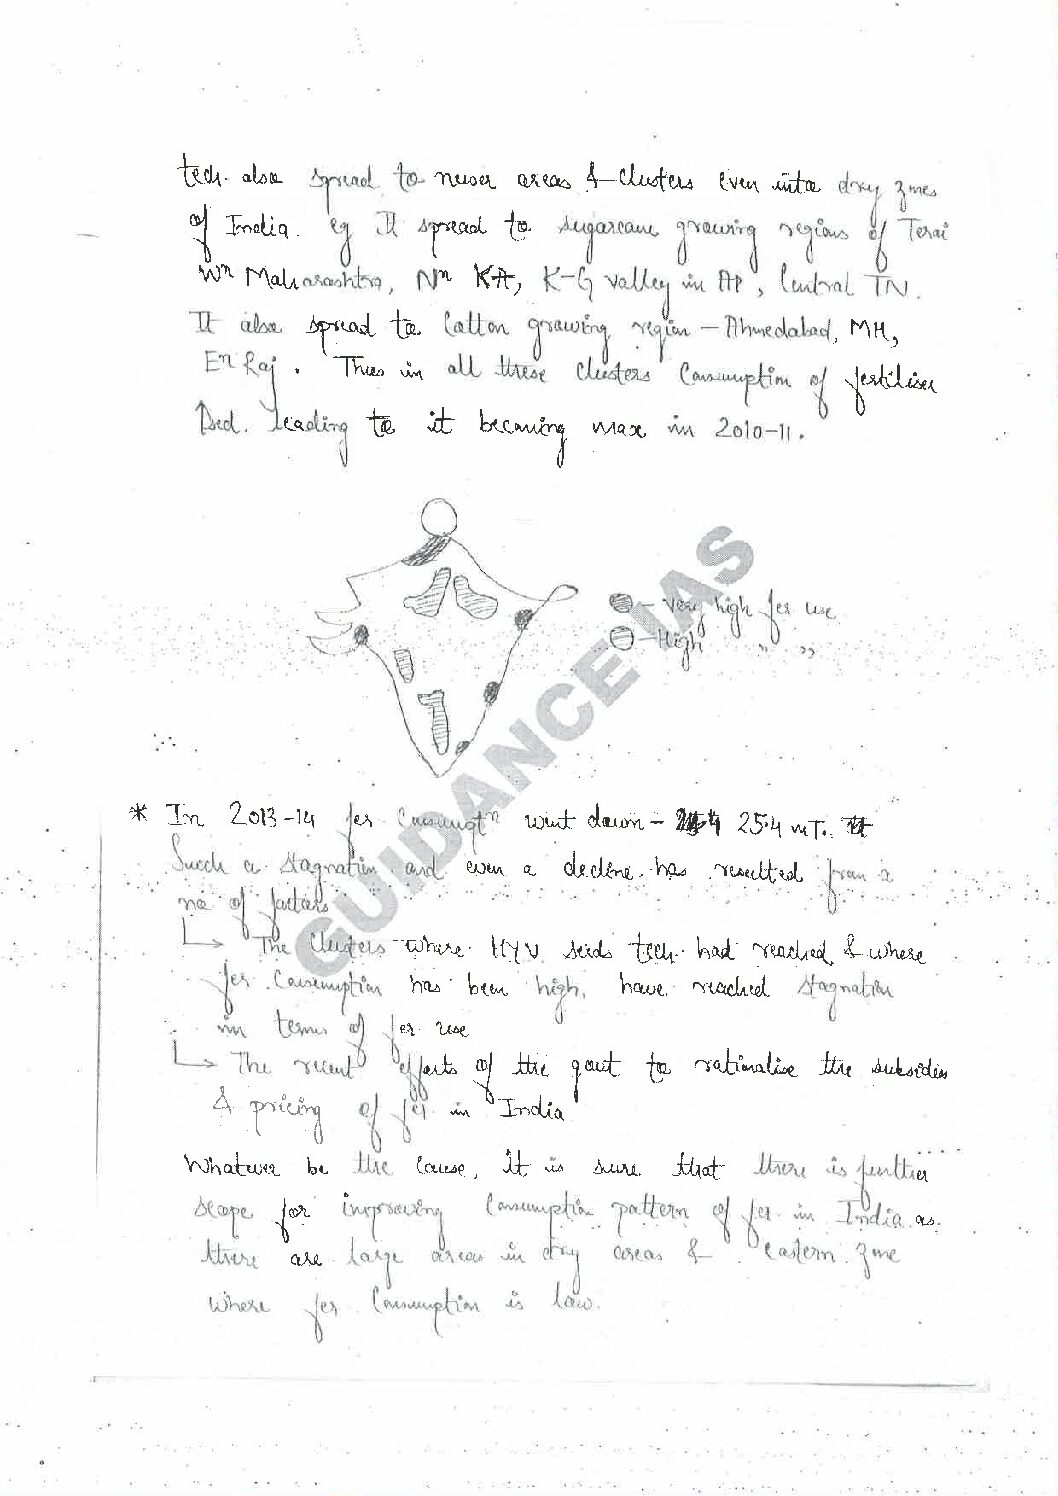 tech. also spread to newer areas & clusters even into dry zones
of India. eg It spread to sugarcane growing regions of Terai
Wn Maharashtra, Nn KA, K-G valley in AP, Central TN.
It also spread to Cotton growing region - Ahmedabad, MH,
En Raj. Thus in all these clusters Consumption of fertiliser
↑sed. leading to it becoming max in 2010-11.
- Very high fer use
- High " "
GUIDANCE IAS
* In 2013-14 fer Consumptn went down - 25.4 mT.
Such a stagnation and even a decline has resulted from a
no of factors
↳ The clusters where HYV seeds tech. had reached & where
fer. Consumption has been high, have reached stagnation
in terms of fer use
↳ The recent efforts of the govt to rationalise the subsidies
& pricing of fer in India
Whatever be the cause, it is sure that there is further
scope for improving Consumption pattern of fer in India as
there are large areas in dry areas & eastern zone
where fer Consumption is low.